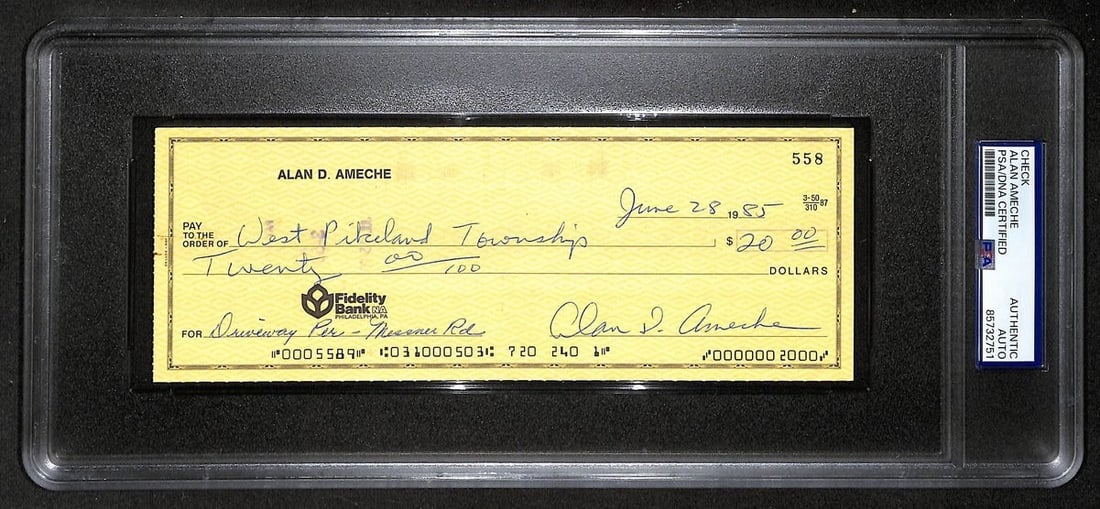 558
ALAN D. AMECHE
3-50 87
310
June 28 1985
PAY
TO THE
ORDER OF West Pikeland Township $ 20 00
Twenty 00/100 DOLLARS
Fidelity
Bank NA
PHILADELPHIA, PA
FOR Driveway Per - Messner Rd Alan D. Ameche
⑈000558⑈ ⑆031000503⑆ 720 240 1⑈ ⑈0000002000⑈
CHECK
ALAN AMECHE
PSA/DNA CERTIFIED
PSA
AUTHENTIC
AUTO
85732751